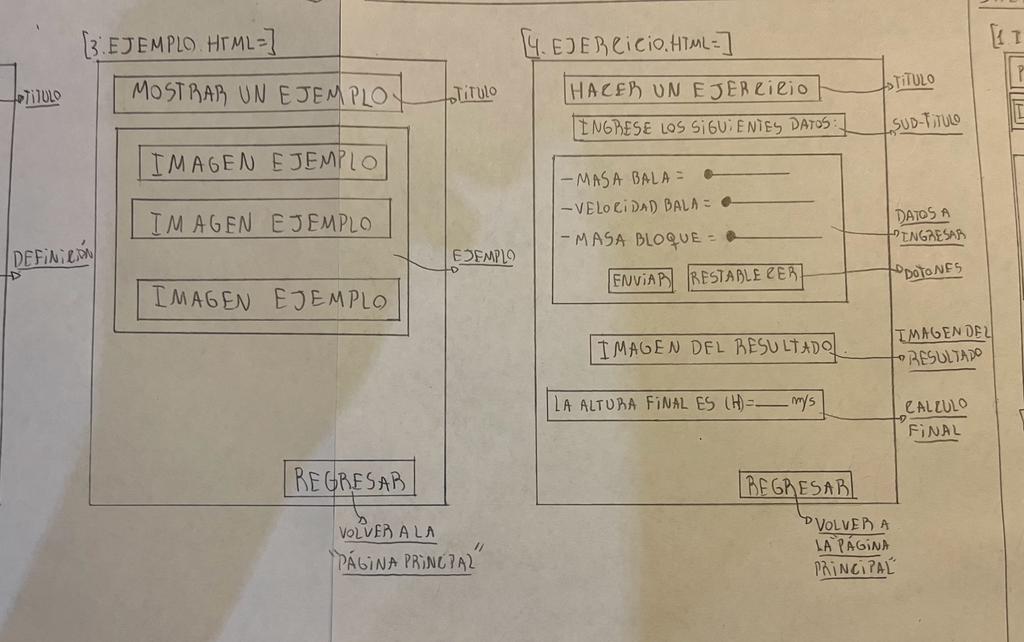 [3. EJEMPLO.HTML=]
MOSTRAR UN EJEMPLO
TITULO
TITULO
IMAGEN EJEMPLO
IMAGEN EJEMPLO
IMAGEN EJEMPLO
DEFINICIÓN
EJEMPLO
REGRESAR
VOLVER A LA
"PÁGINA PRINCIPAL"
[4. EJERCICIO.HTML=]
HACER UN EJERCICIO
TITULO
INGRESE LOS SIGUIENTES DATOS:
SUB-TITULO
-MASA BALA =
-VELOCIDAD BALA =
-MASA BLOQUE =
DATOS A
INGRESAR
ENVIAR RESTABLECER
BOTONES
IMAGEN DEL RESULTADO
IMAGEN DEL
RESULTADO
LA ALTURA FINAL ES (H)=____ m/s
CALCULO
FINAL
REGRESAR
VOLVER A
LA "PÁGINA
PRINCIPAL"